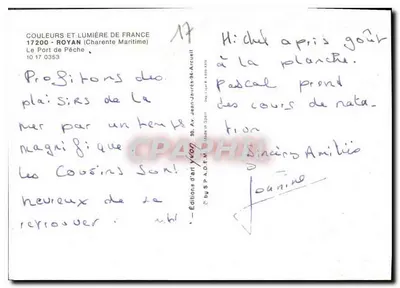 COULEURS ET LUMIÈRE DE FRANCE
17200 - ROYAN (Charente Maritime)
Le Port de Pêche.
10 17 0353
17
Profitons des
plaisirs de la
mer par un temps
magnifique.
Les Cousins sont
heureux de se
retrouver.
Editions d'art yvon
Michel a pris goût
à la planche.
Pascal prend
des cours de nata-
tion
Sincères Amitiés
Jeanine
CPARAMA